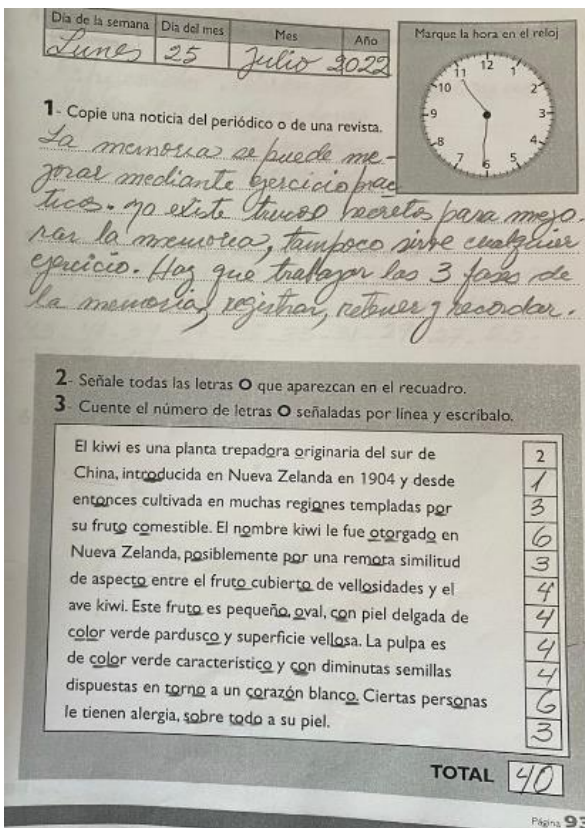 Día de la semana Día del mes Mes Año
Lunes 25 Julio 2022
Marque la hora en el reloj
12
11 1
10 2
9 3
8 4
7 6 5
1- Copie una noticia del periódico o de una revista.
La memoria se puede me-
jorar mediante ejercicio prac
ticos. no existe trucos secretos para mejo.
rar la memoria, tampoco sirve cualquier
ejercicio. Hay que trabajar las 3 fases de
la memoria, registrar, retener y recordar.
2- Señale todas las letras O que aparezcan en el recuadro.
3- Cuente el número de letras O señaladas por línea y escríbalo.
El kiwi es una planta trepadora originaria del sur de 2
China, introducida en Nueva Zelanda en 1904 y desde 1
entonces cultivada en muchas regiones templadas por 3
su fruto comestible. El nombre kiwi le fue otorgado en 6
Nueva Zelanda, posiblemente por una remota similitud 3
de aspecto entre el fruto cubierto de vellosidades y el 4
ave kiwi. Este fruto es pequeño, oval, con piel delgada de 4
color verde pardusco y superficie vellosa. La pulpa es 4
de color verde característico y con diminutas semillas 4
dispuestas en torno a un corazón blanco. Ciertas personas 6
le tienen alergia, sobre todo a su piel. 3
TOTAL 40
Página 93